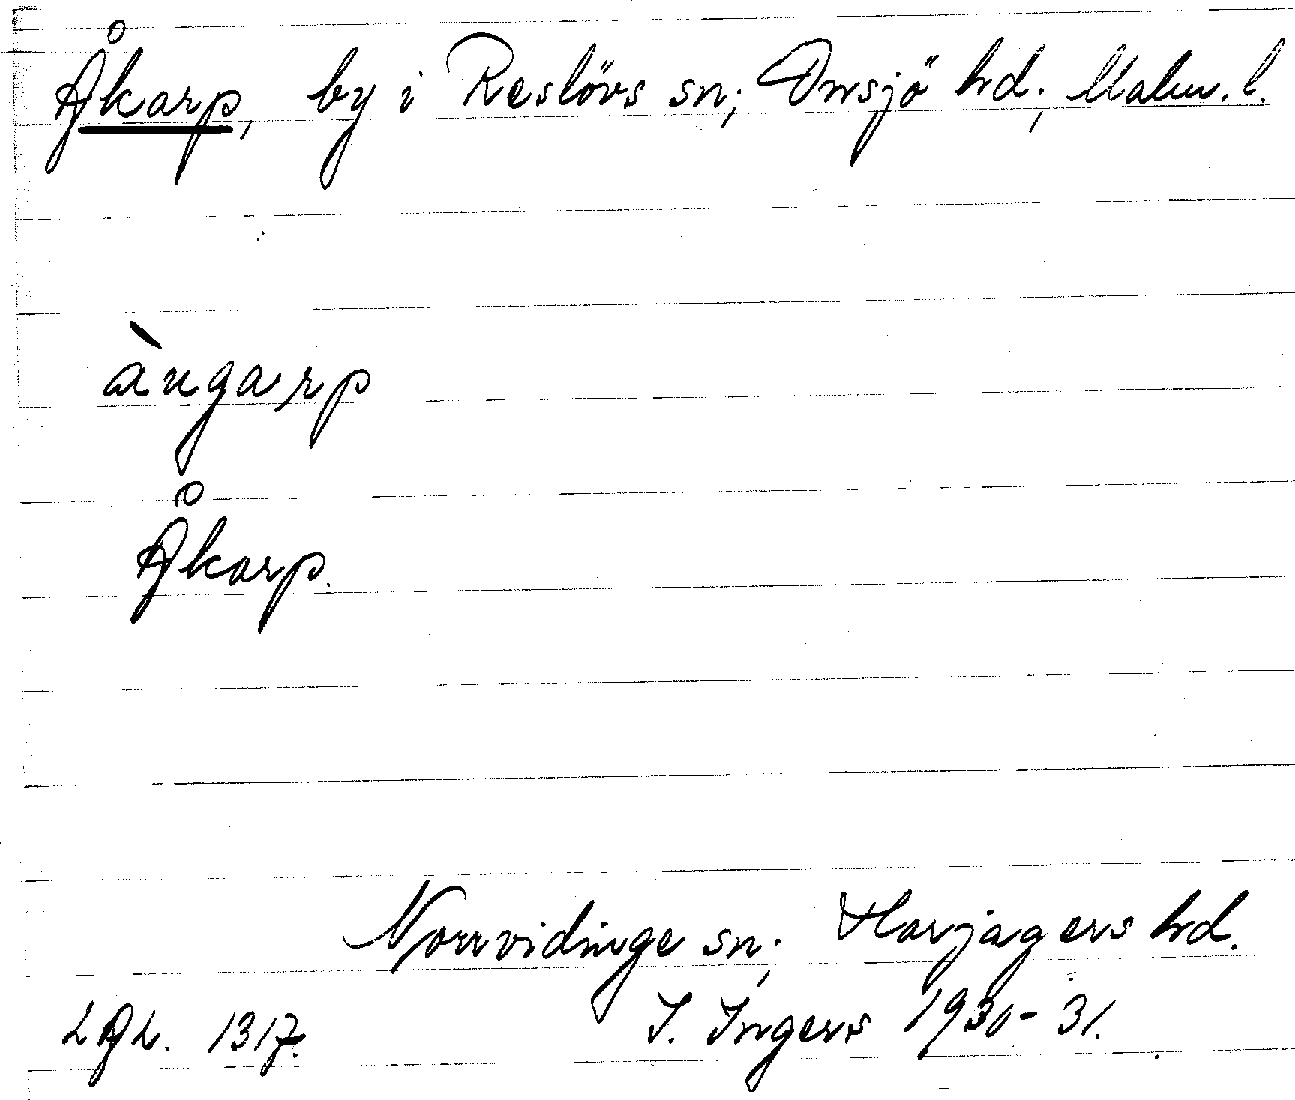 Åkarp, by i Reslövs sn; Onsjö hd; Malm. l.
àugarp
Åkarp.
Norrvidinge sn; Harjagers hd.
LAL. 1317. I. Ingers 1930-31.